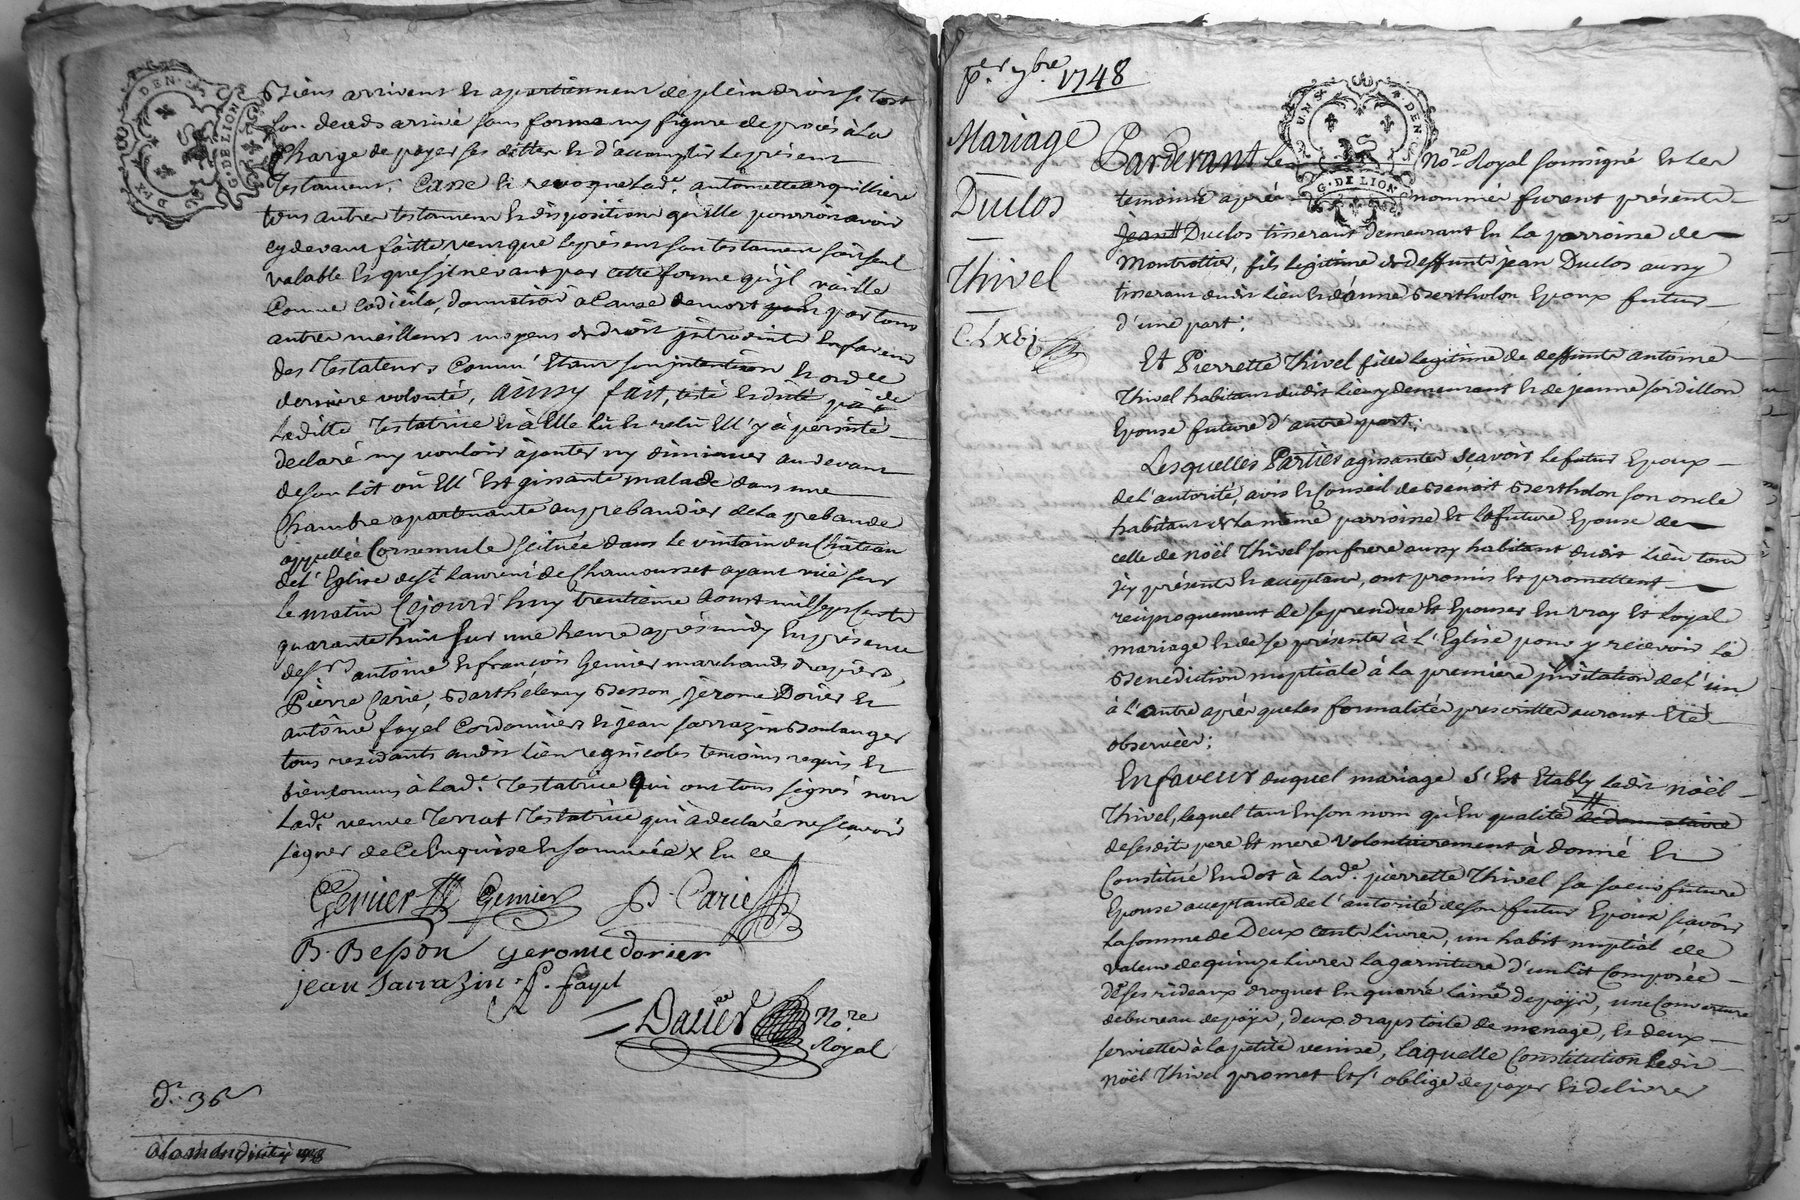 Biens arrivent et apartiennent de plein droit si tost
son deceds arrivé sans forme ny figure de procès à la
Charge de payer ses dettes et d'accomplir le présent
Testament. Casse et revoque lad.e antoinette arquilliere
tous autres testaments et dispositions qu'elle pourroit avoir
cy devant faitte veut que le présent son testament soit seul
valable et que s'il ne vaut par cette forme qu'jl vaille
Comme codicile, donnation à cause de mort par tous
autres meilleurs moyens de droit jntroduits en faveur
des Testateurs comme étant son jntention et ord.e
derniere volonté, aussy fait, testé et dicté par de
laditte Testatrice et à Elle lû et relû Ell' y a persisté
declaré ny vouloir ajouter ny diminuer au devant
de son lit où Ell' est gissante malade dans une
Chambre apartenante au prebandier de la prebande
appellée Cornemule scituée dans le vintain du Château
de l'Eglise de St. Laurent de Chamousset ayant
le matin Cejourd'huy trentieme aoust mil sept cents
quarante huit sur une heure après midy En présence
des s.rs antoine et françois Genier marchands drapiers,
Pierre Carie, Barthélemy Besson, Jerome Dorier et
antoine fayel Cordonniers et jean sarrazin Boulanger
tous residants audit lieu regnicoles temoins requis et
bien connus à lad.e Testatrice qui ont tous signés non
lad.e veuve Terrat Testatrice qui a declaré ne sçavoir
signer de ce Enquise et sommée x En ce
Genier Genier P. Carie
B. Besson gerome dorier
jean Sarrazin A. fayel
Dalier No.re
Royal
D. 36
p.er 7bre 1748
Mariage
Duclos
Thivel
C. Lxbj
Pardevant Les No.re Royal soussigné et les
temoins après nommés furent présents
jean Duclos tisserant demeurant En La parroisse de
Montrottier, fils legitime de deffunts jean Duclos aussy
tisserant dudit lieu et d'anne Bertholon Epoux futur
d'une part;
Et Pierrette Thivel fille legitime de deffunts antoine
Thivel habitant dudit lieu y demeurant et de jeanne jordillon
Epouse future d'autre part;
Lesquelles Parties agissantes sçavoir le futur Epoux
de l'autorité, avis et Conseil de Benoit Bertholon son oncle
habitant de la même parroisse et la future Epouse de
celle de noël Thivel son frere aussy habitant dudit Lieu tous
jcy présents et acceptans, ont promis et promettent
reciproquement de se prendre et Epouser En vray et Loyal
mariage et de se présenter à L'Eglise pour y recevoir la
Benediction nuptiale à la premiere jnvitation de l'un
à l'autre après que les formalités prescrittes auront Eté
observées;
En faveur duquel mariage s'est Etably Ledit noël
Thivel, lequel tant En son nom qu'En qualité
de sesdits pere et mere volontairement à donné et
Constitué En dot à lad.e pierrette Thivel sa soeur future
Epouse acceptante de l'autorité de son futur Epoux sçavoir
La somme de Deux Cents Livres, un habit nuptial de
valeur de quinze Livres la garniture d'un Lit Composée
de ses rideaux droguet En quarré laine de païs, une Couverture
de bureau de païs, deux draps toile de menage, et deux
serviettes à la petite venise, laquelle Constitution Ledit
noël Thivel promet et s'oblige de payer et delivrer